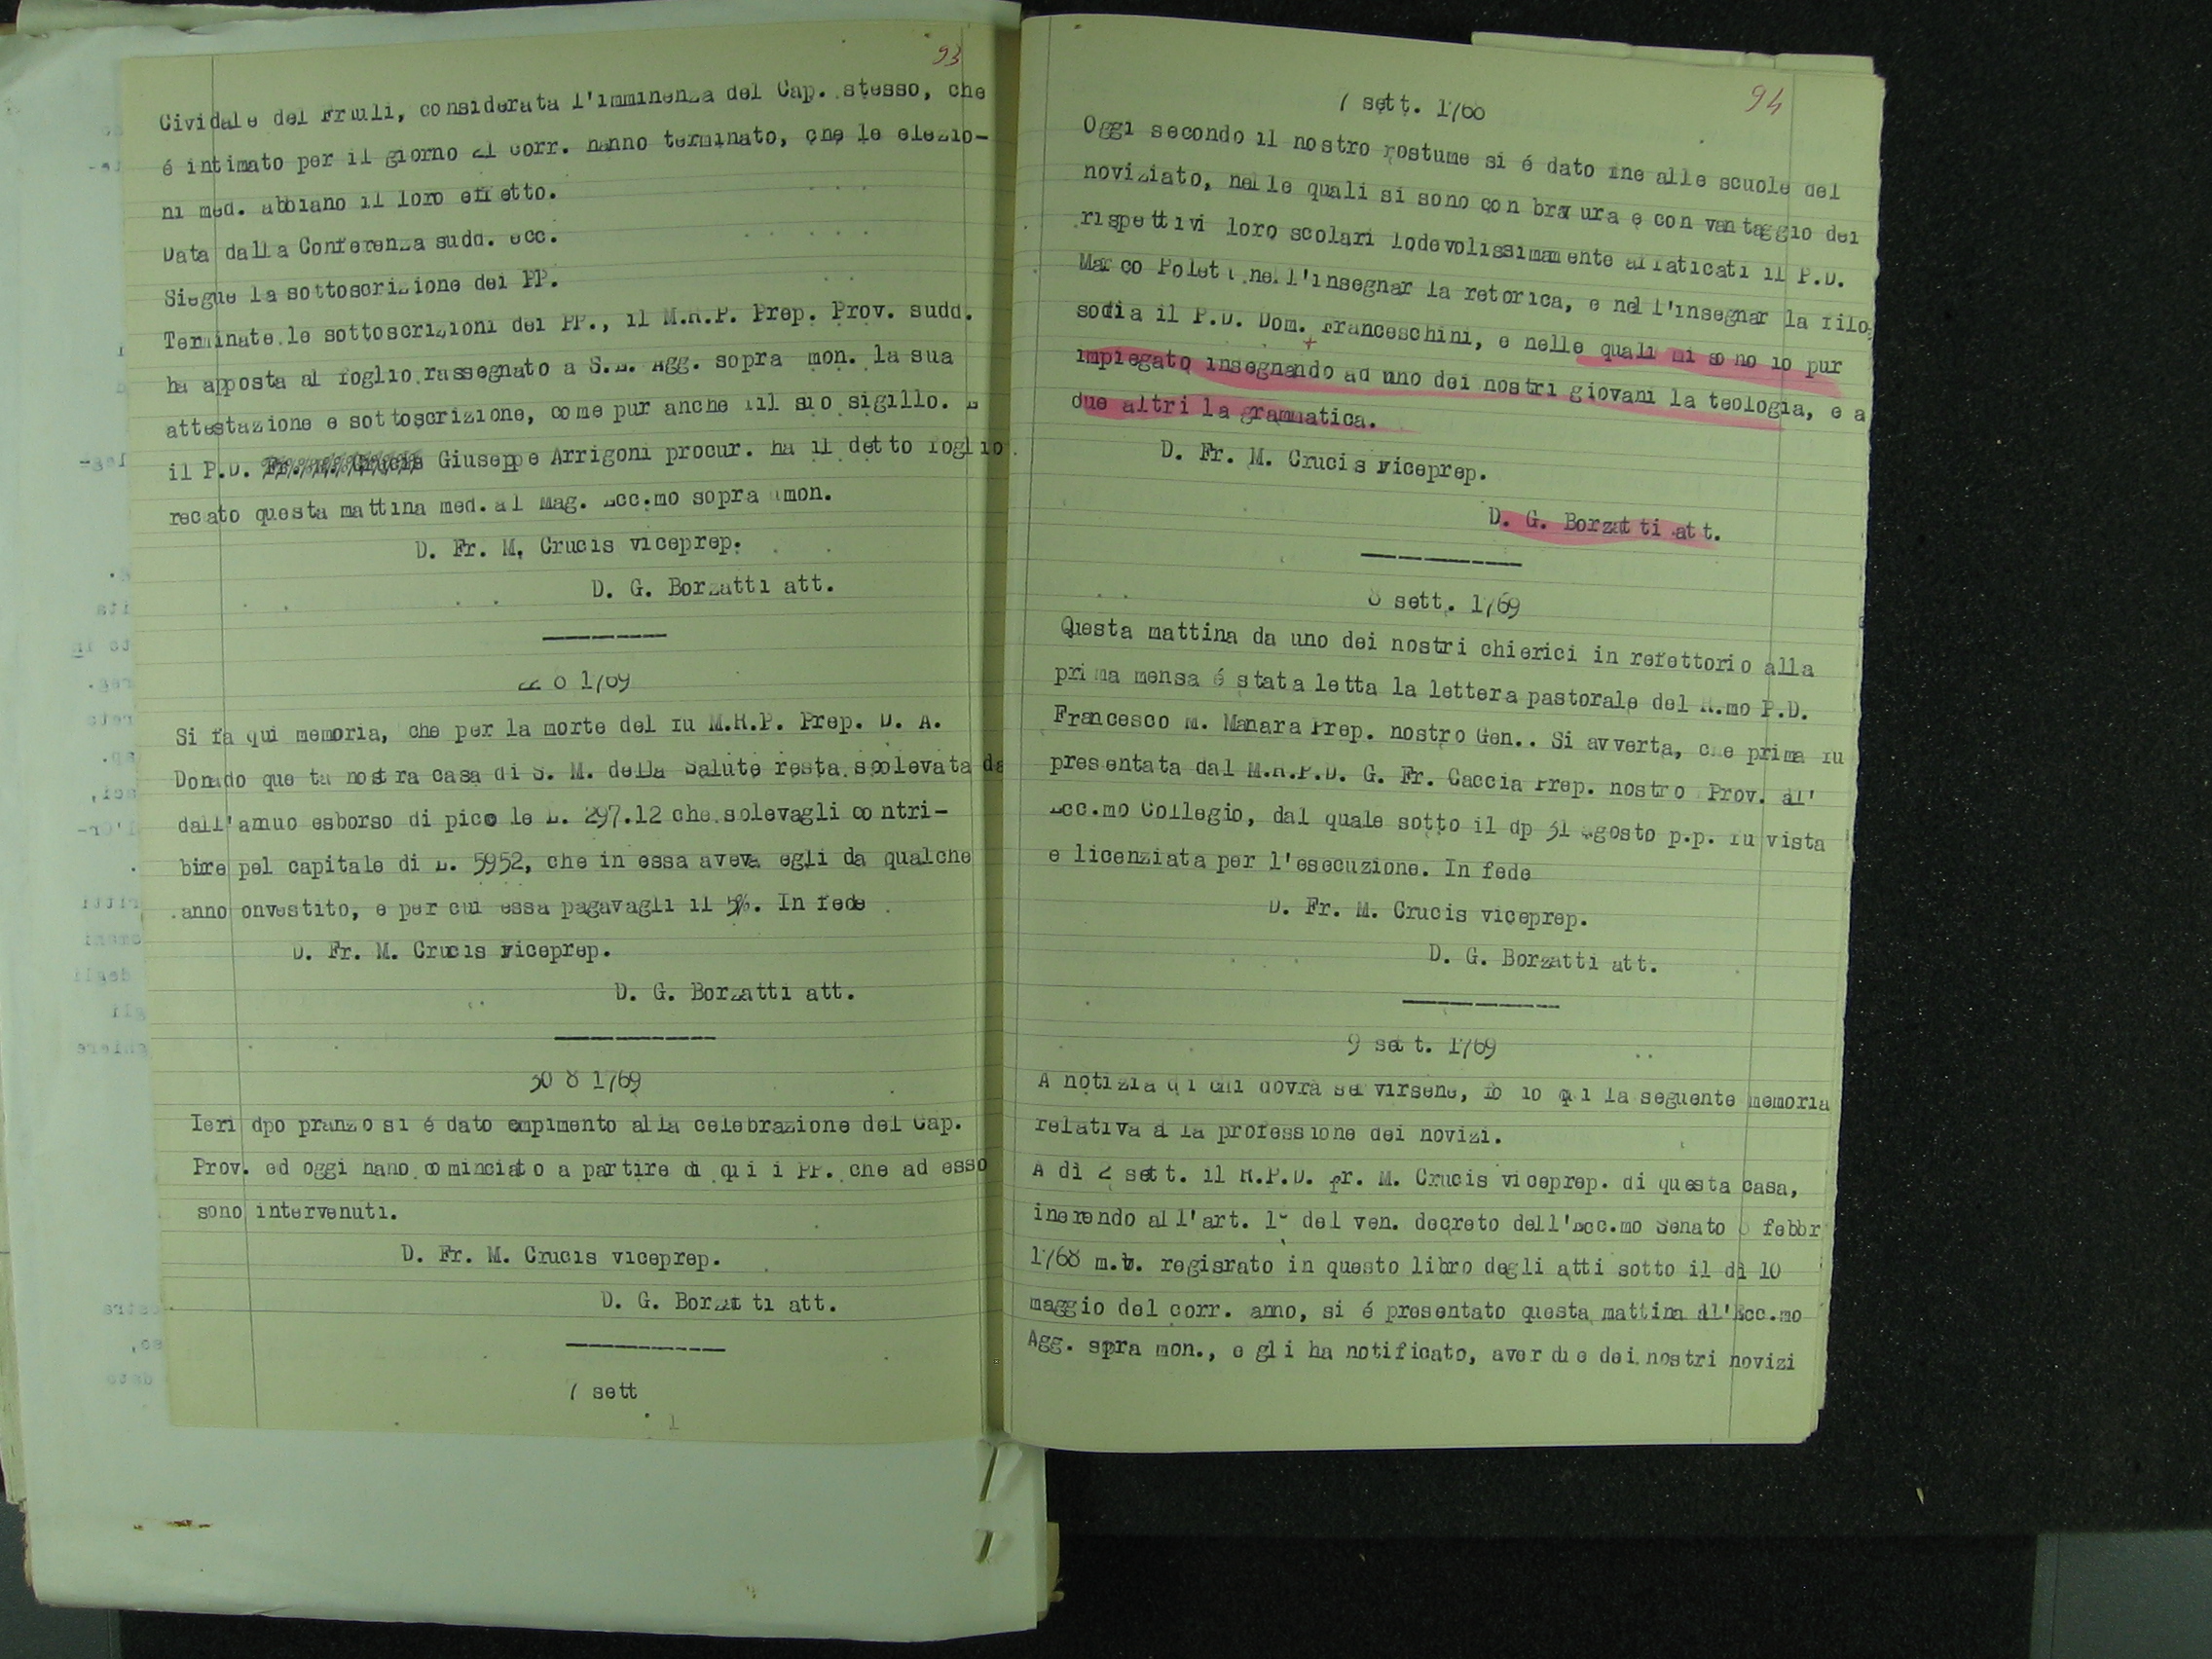 93
Cividale del Friuli, considerata l'imminenza del Cap. stesso, che
é intimato per il giorno 21 corr. hanno terminato, che le elezio-
ni med. abbiano il loro effetto.
Data dalla Conferenza sudd. ecc.
Siegue la sottoscrizione dei PP.
Terminate le sottoscrizioni dei PP., il M.R.P. Prep. Prov. sudd.
ha apposta al foglio rassegnato a S.E. Agg. sopra mon. la sua
attestazione e sottoscrizione, come pur anche iil suo sigillo. E
il P.D. Giuseppe Arrigoni procur. ha il detto foglio
recato questa mattina med. al Mag. Ecc.mo sopra mon.
D. Fr. M. Crucis viceprep.
D. G. Borzatti att.
22 8 1769
Si fa qui memoria, che per la morte del fu M.R.P. Prep. D. A.
Donado que ta nostra casa di S. M. della Salute resta spolevata da
dall'amuo esborso di pico le L. 297.12 che solevagli contri-
buire pel capitale di L. 5952, che in essa aveva egli da qualche
anno onvestito, e per cui essa pagavagli il 5%. In fede
D. Fr. M. Crucis viceprep.
D. G. Borzatti att.
30 8 1769
Ieri dpo pranzo si é dato empimento alla celebrazione del Cap.
Prov. ed oggi hano cominciato a partire di qui i PP. che ad esso
sono intervenuti.
D. Fr. M. Crucis viceprep.
D. G. Borzatti att.
7 sett
94
7 sett. 1760
Oggi secondo il nostro rostume si é dato ine alle scuole del
noviziato, nelle quali si sono con bravura e con vantaggio dei
rispettivi loro scolari lodevolissimamente affaticati il P.D.
Marco Poleti nell'insegnar la retorica, e nell'insegnar la filo
sodia il P.D. Dom. Franceschini, e nelle quali mi sono io pur
impiegato insegnando ad uno dei nostri giovani la teologia, e a
due altri la grammatica.
D. Fr. M. Crucis viceprep.
D. G. Borzatti att.
8 sett. 1769
Questa mattina da uno dei nostri chierici in refettorio alla
prima mensa é stata letta la lettera pastorale del R.mo P.D.
Francesco M. Manara Prep. nostro Gen.. Si avverta, che prima fu
presentata dal M.R.P.D. G. Fr. Caccia Prep. nostro Prov. al'
Ecc.mo Collegio, dal quale sotto il dp 31 agosto p.p. fu vista
e licenziata per l'esecuzione. In fede
D. Fr. M. Crucis viceprep.
D. G. Borzatti att.
9 sett. 1769
A notizia di chi dovrà servirsene, fo io qui la seguente memoria
relativa a la professione dei novizi.
A dì 2 sett. il R.P.D. fr. M. Crucis viceprep. di questa casa,
inerendo all'art. 1° del ven. decreto dell'Ecc.mo Senato febbr
1768 m.v. regisrato in questo libro degli atti sotto il dì 10
maggio del corr. anno, si é presentato questa mattina all'Ecc.mo
Agg. spra mon., e gli ha notificato, aver due dei nostri novizi